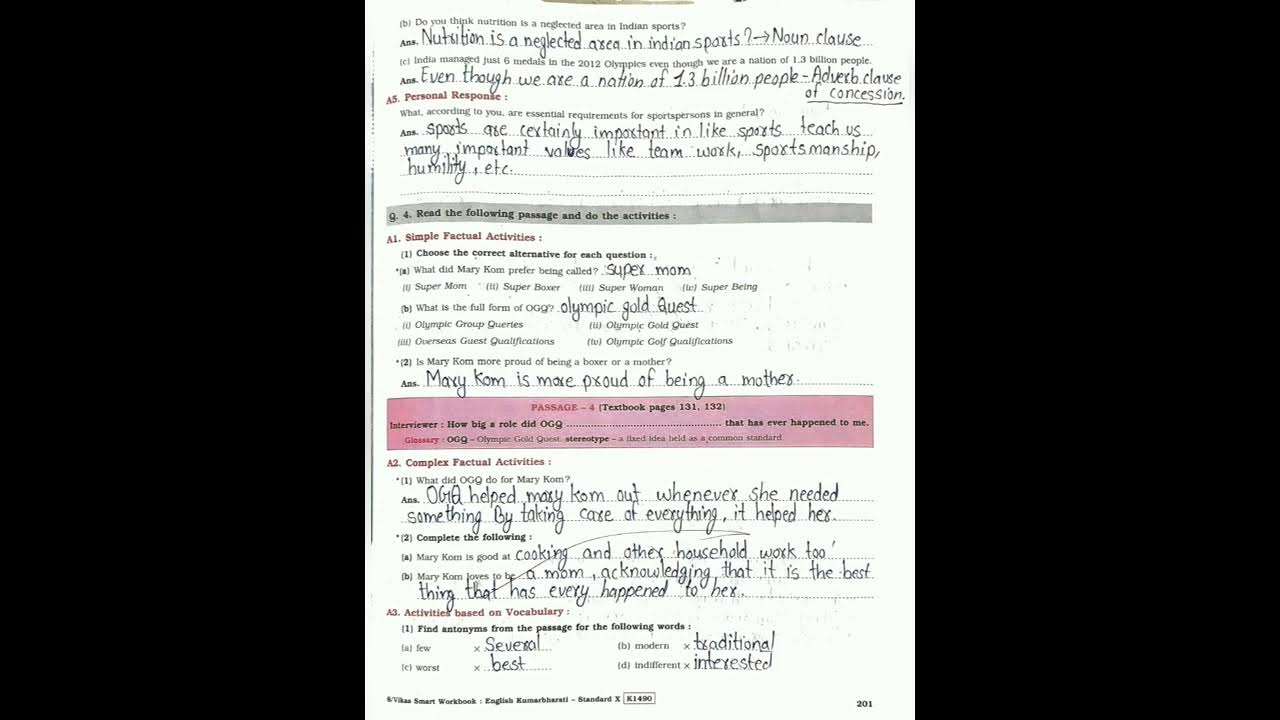 (b) Do you think nutrition is a neglected area in Indian sports?
Ans. Nutrition is a neglected area in indian sports? → Noun clause
(c) India managed just 6 medals in the 2012 Olympics even though we are a nation of 1.3 billion people.
Ans. Even though we are a nation of 1.3 billion people - Adverb clause
of concession.
A5. Personal Response :
What, according to you, are essential requirements for sportspersons in general?
Ans. sports are certainly important in like sports teach us
many important values like team work, sportsmanship,
humility, etc.
Q. 4. Read the following passage and do the activities :
A1. Simple Factual Activities :
(1) Choose the correct alternative for each question :
*(a) What did Mary Kom prefer being called? super mom
(i) Super Mom (ii) Super Boxer (iii) Super Woman (iv) Super Being
(b) What is the full form of OGQ? olympic gold Quest
(i) Olympic Group Queries (ii) Olympic Gold Quest
(iii) Overseas Guest Qualifications (iv) Olympic Golf Qualifications
*(2) Is Mary Kom more proud of being a boxer or a mother?
Ans. Mary Kom is more proud of being a mother.
PASSAGE – 4 (Textbook pages 131, 132)
Interviewer : How big a role did OGQ ................................................ that has ever happened to me.
Glossary : OGQ – Olympic Gold Quest, stereotype – a fixed idea held as a common standard.
A2. Complex Factual Activities :
*(1) What did OGQ do for Mary Kom?
Ans. OGQ helped mary kom out whenever she needed
something By taking care of everything, it helped her.
*(2) Complete the following :
(a) Mary Kom is good at cooking and other household work too'
(b) Mary Kom loves to be a mom, acknowledging that it is the best
thing that has every happened to her.
A3. Activities based on Vocabulary :
(1) Find antonyms from the passage for the following words :
(a) few × Several (b) modern × traditional
(c) worst × best (d) indifferent × interested
6/Vikas Smart Workbook : English Kumarbharati – Standard X K1490
201